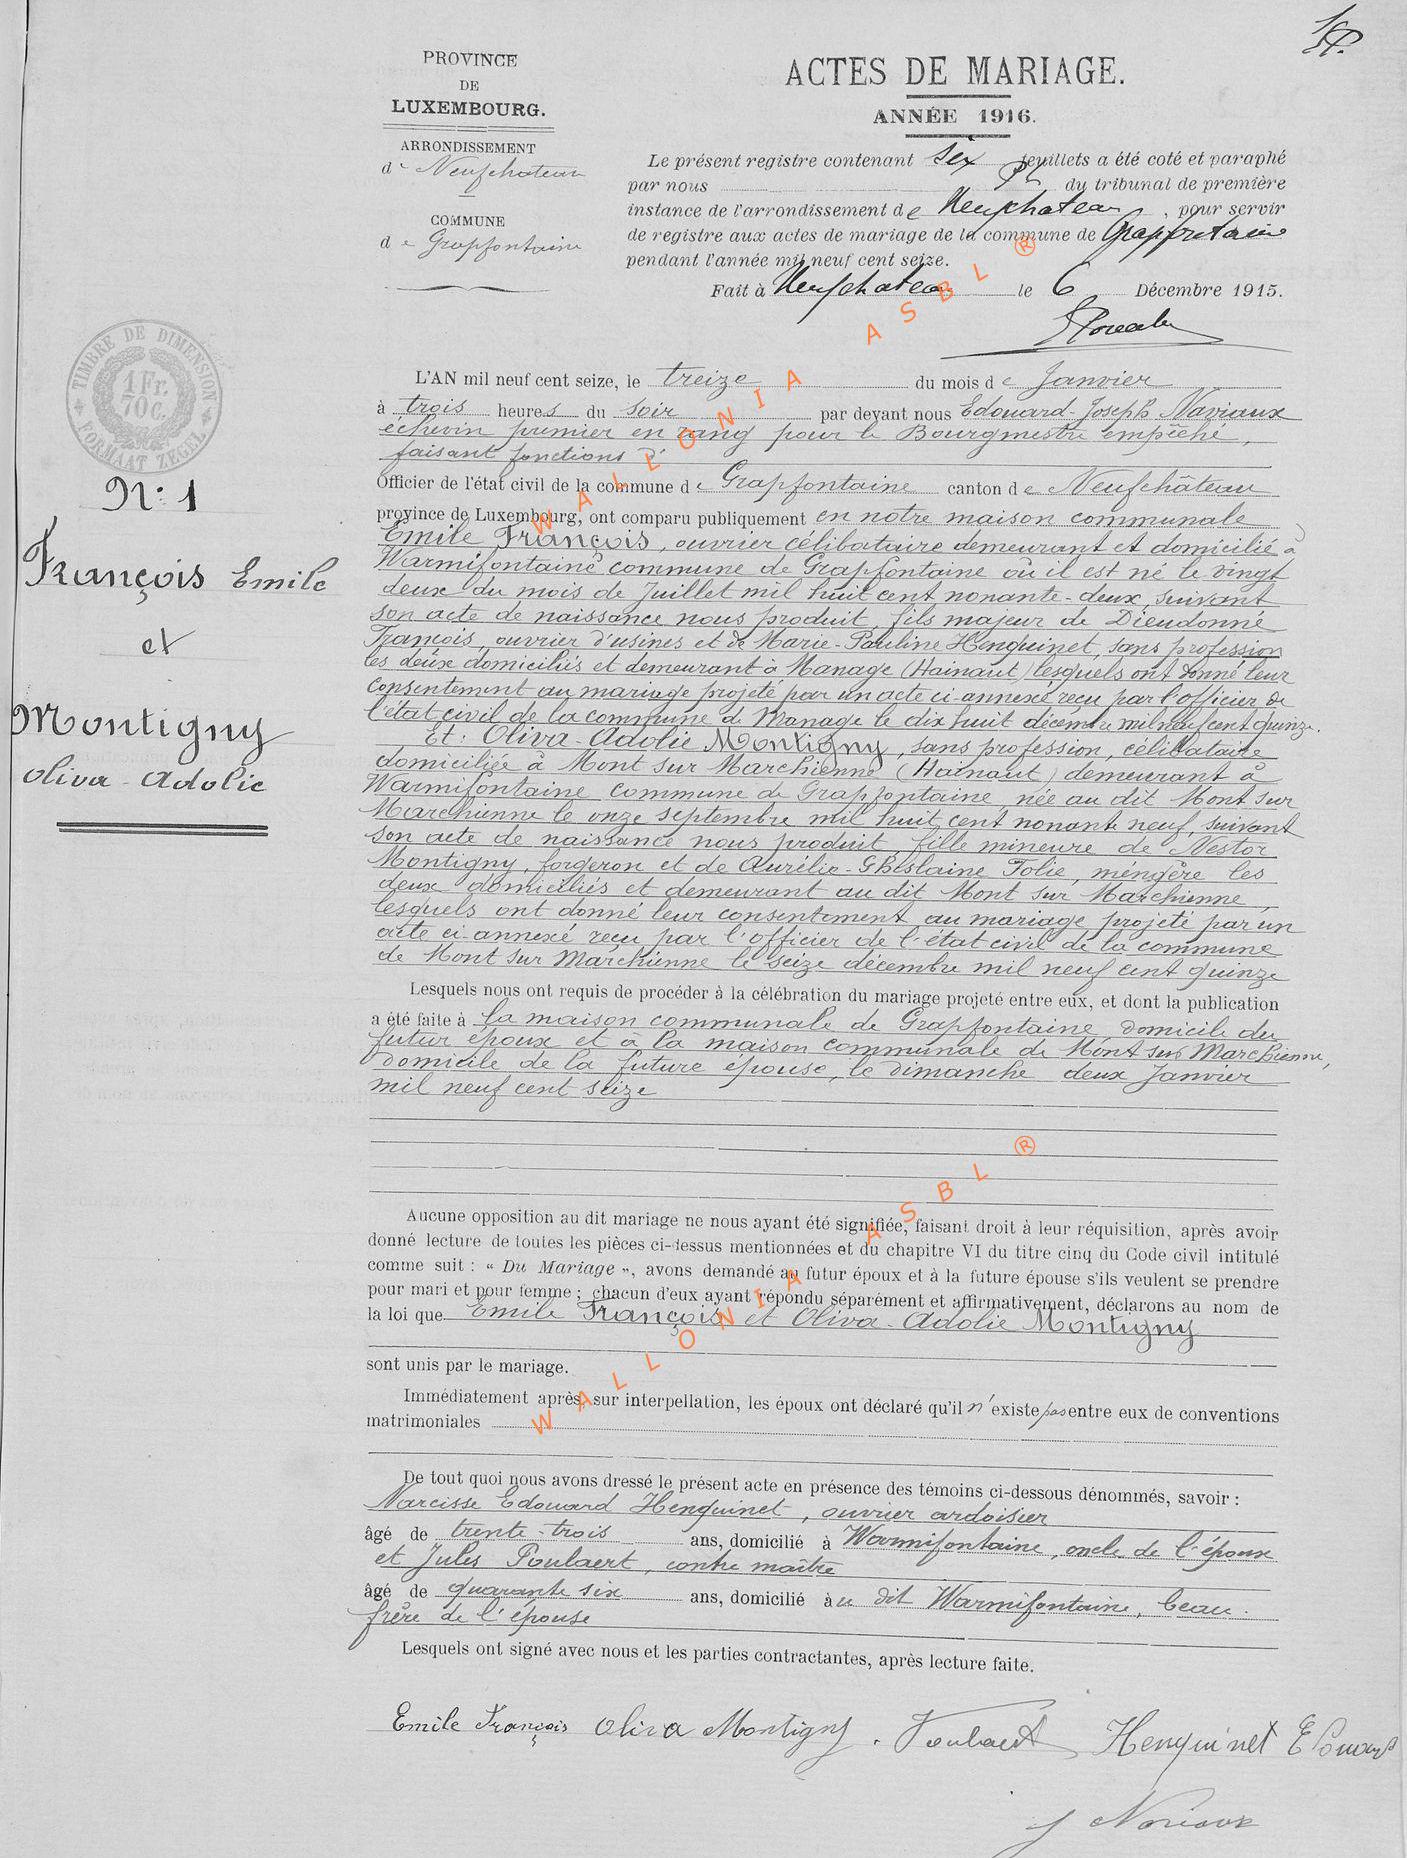 PROVINCE
DE
LUXEMBOURG.
ARRONDISSEMENT
de Neufchateau
COMMUNE
de Grapfontaine
ACTES DE MARIAGE.
ANNÉE 1916.
Le présent registre contenant six feuillets a été coté et paraphé
par nous Pt du tribunal de première
instance de l'arrondissement de Neufchateau, pour servir
de registre aux actes de mariage de la commune de Grapfontaine
pendant l'année mil neuf cent seize.
Fait à Neufchateau le 6 Décembre 1915.
TIMBRE DE DIMENSION
1 Fr.
70 C.
FORMAAT ZEGEL
N: 1
François Emile
et
Montigny
Oliva-Adolie
L'AN mil neuf cent seize, le treize du mois de Janvier
à trois heures du soir par devant nous Edouard-Joseph Naviaux
échevin premier en rang pour le Bourgmestre empêché,
faisant fonctions d'
Officier de l'état civil de la commune de Grapfontaine canton de Neufchâteau
province de Luxembourg, ont comparu publiquement en notre maison communale
Emile François, ouvrier célibataire demeurant et domicilié à
Warmifontaine commune de Grapfontaine où il est né le vingt
deux du mois de Juillet mil huit cent nonante-deux, suivant
son acte de naissance nous produit, fils majeur de Dieudonné
François, ouvrier d'usines et de Marie-Pauline Henquinet, sans profession
les deux domiciliés et demeurant à Manage (Hainaut) lesquels ont donné leur
consentement au mariage projeté par un acte ci annexé reçu par l'officier de
l'état civil de la commune de Manage le dix huit décembre mil neuf cent quinze.
Et: Oliva-Adolie Montigny, sans profession, célibataire
domiciliée à Mont sur Marchienne (Hainaut) demeurant à
Warmifontaine commune de Grapfontaine, née au dit Mont sur
Marchienne le onze septembre mil huit cent nonante neuf, suivant
son acte de naissance nous produit, fille mineure de Nestor
Montigny, forgeron et de Aurélie-Ghislaine Folie, méngère les
deux domiciliés et demeurant au dit Mont sur Marchienne,
lesquels ont donné leur consentement au mariage projeté par un
acte ci-annexé reçu par l'officier de l'état civil de la commune
de Mont sur Marchienne le seize décembre mil neuf cent quinze
Lesquels nous ont requis de procéder à la célébration du mariage projeté entre eux, et dont la publication
a été faite à la maison communale de Grapfontaine, domicile du
futur époux et à la maison communale de Mont sur Marchienne,
domicile de la future épouse, le dimanche deux Janvier
mil neuf cent seize
Aucune opposition au dit mariage ne nous ayant été signifiée, faisant droit à leur réquisition, après avoir
donné lecture de toutes les pièces ci-dessus mentionnées et du chapitre VI du titre cinq du Code civil intitulé
comme suit : « Du Mariage », avons demandé au futur époux et à la future épouse s'ils veulent se prendre
pour mari et pour femme ; chacun d'eux ayant répondu séparément et affirmativement, déclarons au nom de
la loi que Emile François et Oliva-Adolie Montigny
sont unis par le mariage.
Immédiatement après, sur interpellation, les époux ont déclaré qu'il n'existe pas entre eux de conventions
matrimoniales
De tout quoi nous avons dressé le présent acte en présence des témoins ci-dessous dénommés, savoir :
Narcisse Edouard Henquinet, ouvrier ardoisier
âgé de trente-trois ans, domicilié à Warmifontaine, oncle de l'époux
et Jules Poulaert, contre maître
âgé de quarante six ans, domicilié au dit Warmifontaine, beau-
frère de l'épouse
Lesquels ont signé avec nous et les parties contractantes, après lecture faite.
Emile François Oliva Montigny Poulaert Henquinet Edouard
J Naviaux
WALLONIA ASBL ®
WALLONIA ASBL ®